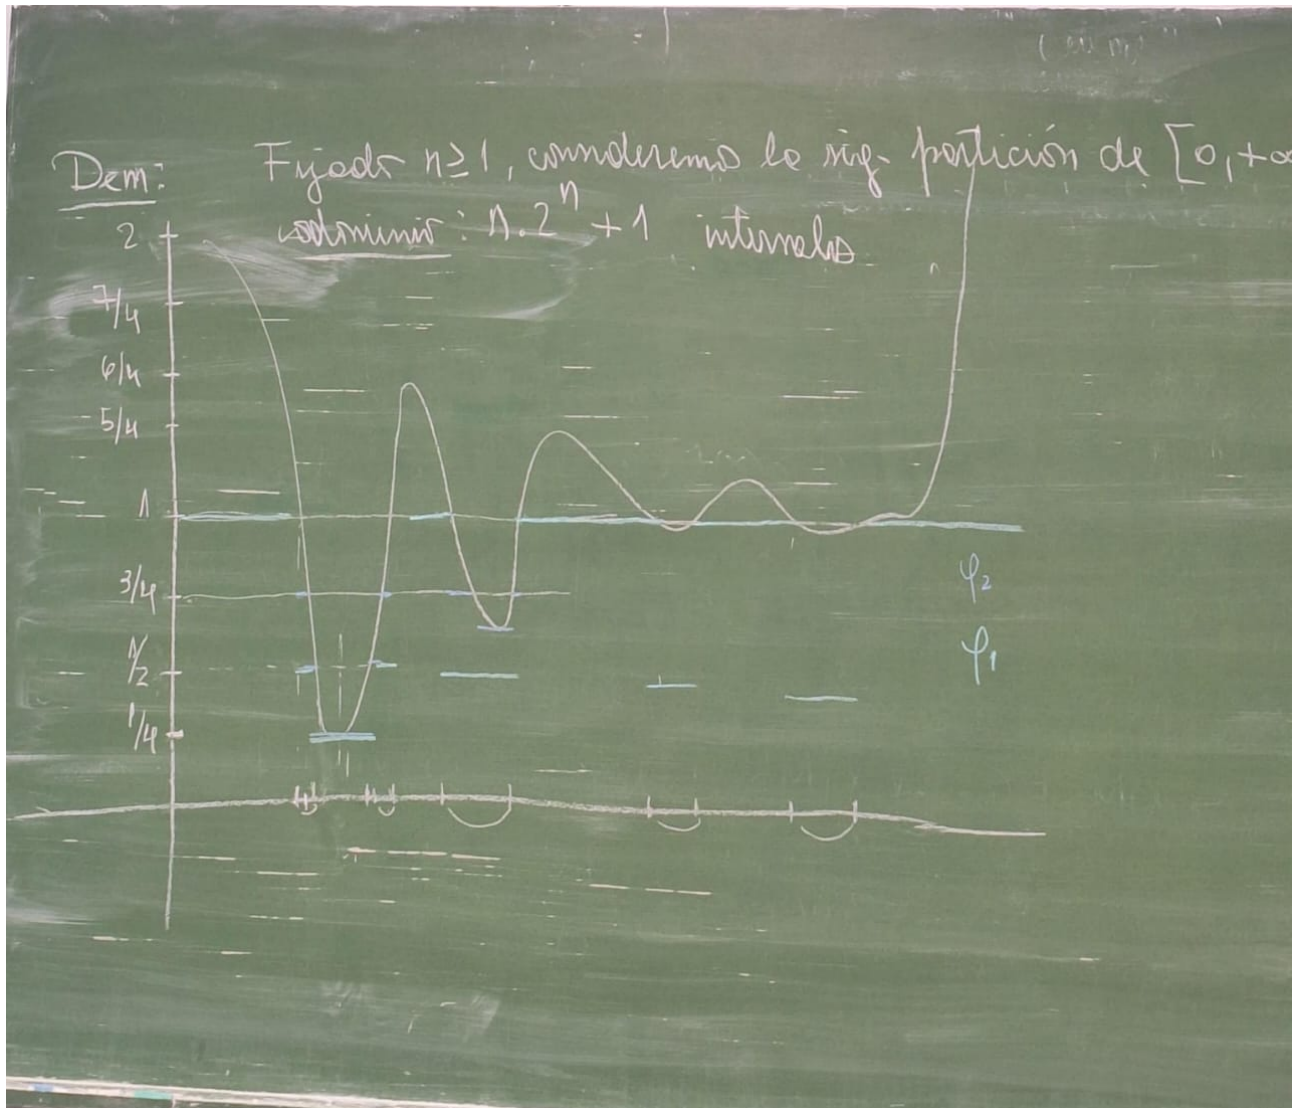 Dem: Fijado n≥1, consideremos la sig. partición de [0,+∞
codominio: n.2ⁿ + 1 intervalos
2
7/4
6/4
5/4
1
3/4
φ₂
1/2
φ₁
1/4